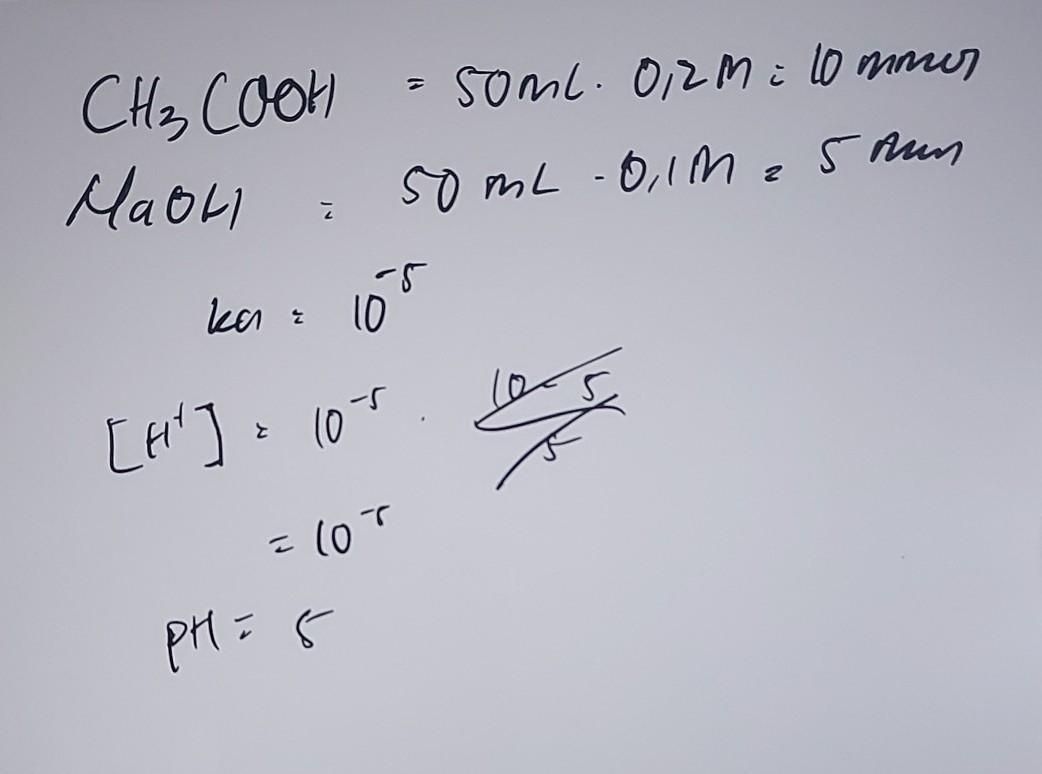 CH3COOH = 50 mL . 0,2 M = 10 mmol
NaOH = 50 mL . 0,1 M = 5 mmol
ka = 10^-5
[H+] = 10^-5 . (10-5)/5
= 10^-5
pH = 5